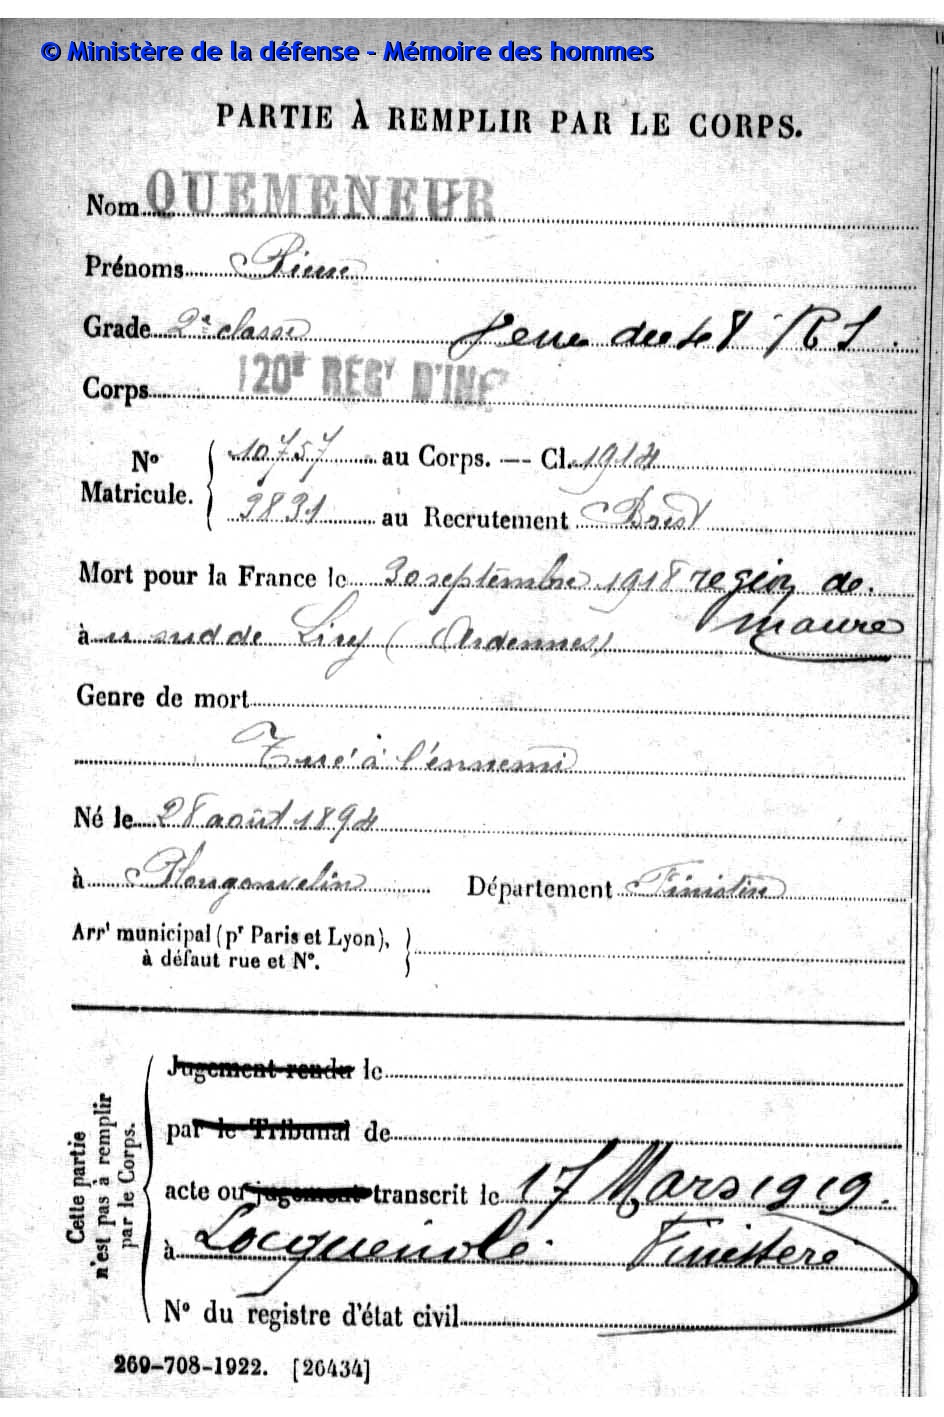 © Ministère de la défense - Mémoire des hommes
PARTIE À REMPLIR PAR LE CORPS.
Nom QUEMENEUR
Prénoms Pierre
Grade 2e classe venu du 48 RI
Corps 120E REGT D'INF
No Matricule. 10757 au Corps. — Cl. 1914
3831 au Recrutement Brest
Mort pour la France le 30 septembre 1918 region de
maure
à u sud de Liry (Ardennes)
Genre de mort
Tué à l'ennemi
Né le 28 août 1894
à Plougonvelin Département Finistère
Arrt municipal (pr Paris et Lyon),
à défaut rue et No.
Cette partie
n'est pas à remplir
par le Corps.
Jugement rendu le
par le Tribunal de
acte ou jugement transcrit le 17 Mars 1919.
à Locquénolé Finistère
No du registre d'état civil
269-708-1922. [26434]